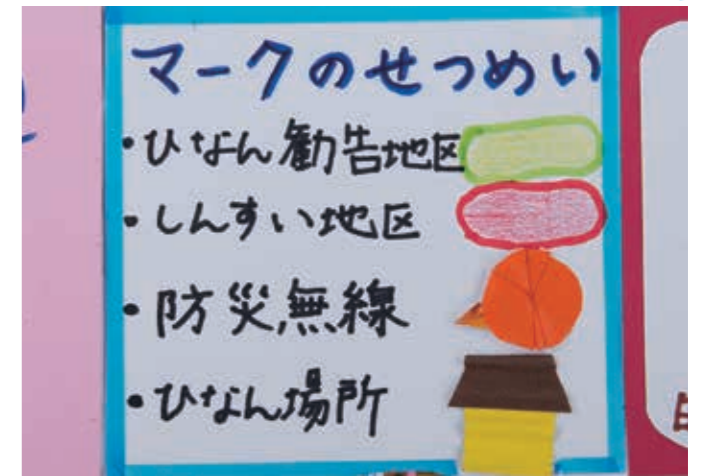 マークのせつめい
・ひなん勧告地区
・しんすい地区
・防災無線
・ひなん場所